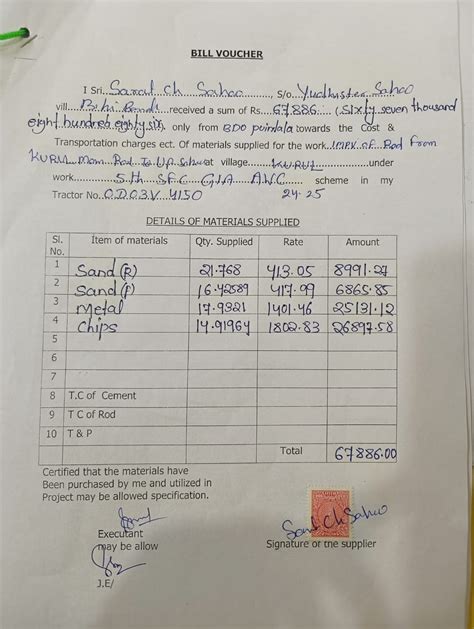 BILL VOUCHER
I Sri...Sarat Ch Sahoo..........., S/o. Yudhister Sahoo
vill....Bihi Bandh......received a sum of Rs....67886....(Sixty seven thousand
eight hundred eighty six only from BDO puintala towards the Cost &
Transportation charges ect. Of materials supplied for the work. IMPV of Rod From
KURUL Mom Rod To UP School at village..........KURUL..............under
work..........5th SFC GIA AWC............ scheme in my
Tractor No. OD03V 4150 24-25
DETAILS OF MATERIALS SUPPLIED
Sl. No. Item of materials Qty. Supplied Rate Amount
1 Sand (R) 21.768 413.05 8991.27
2 Sand (F) 16.42589 417.99 6865.85
3 Metal 17.9321 1401.46 25131.12
4 Chips 14.91964 1802.83 26897.58
5
6
7
8 T.C of Cement
9 T C of Rod
10 T & P
Total 67886.00
Certified that the materials have
Been purchased by me and utilized in
Project may be allowed specification.
Sarat Ch Sahoo
Executant
may be allow
Signature of the supplier
J.E/